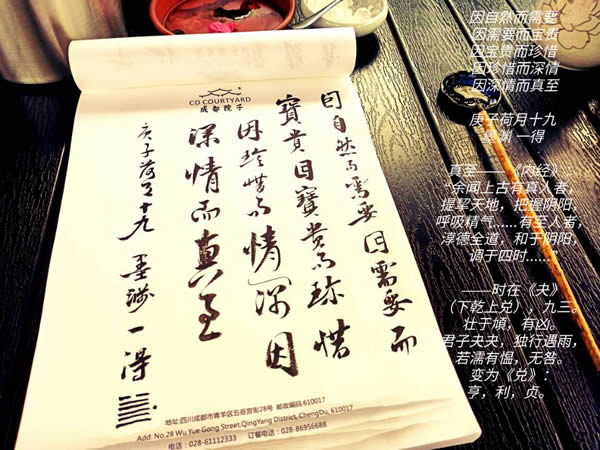 CD COURTYARD
成都院子
因自然而需要因需要而
寶貴因寶貴而珍惜
因珍惜而情深因
深情而真至
庚子荷月十九
一得
地址:四川成都市青羊区五岳宫街28号 邮政编码:610017
Add: No.28 Wu Yue Gong Street,QingYang District, ChengDu, 610017
028-61112333 订餐电话:028-86956688
因自然而需要
因需要而宝贵
因宝贵而珍惜
因珍惜而深情
因深情而真至
庚子荷月十九
墨渊 一得
真至——《内经》：
“余闻上古有真人者，
提挈天地，把握阴阳，
呼吸精气……有至人者，
淳德全道，和于阴阳，
调于四时……”
——时在《夬》
（下乾上兑），九三。
壮于頄，有凶。
君子夬夬，独行遇雨，
若濡有愠，无咎。
变为《兑》：
亨，利，贞。